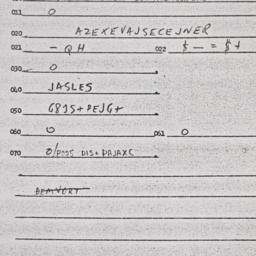 011 0
020 AZEXEVAJSECEJNER
021 - QH 022 $ - = $ +
030 0
040 JASLES
050 G8JS+PEJG+
060 0 061 0
070 0/POSS DIS+ PAJAXC
BEMVORT